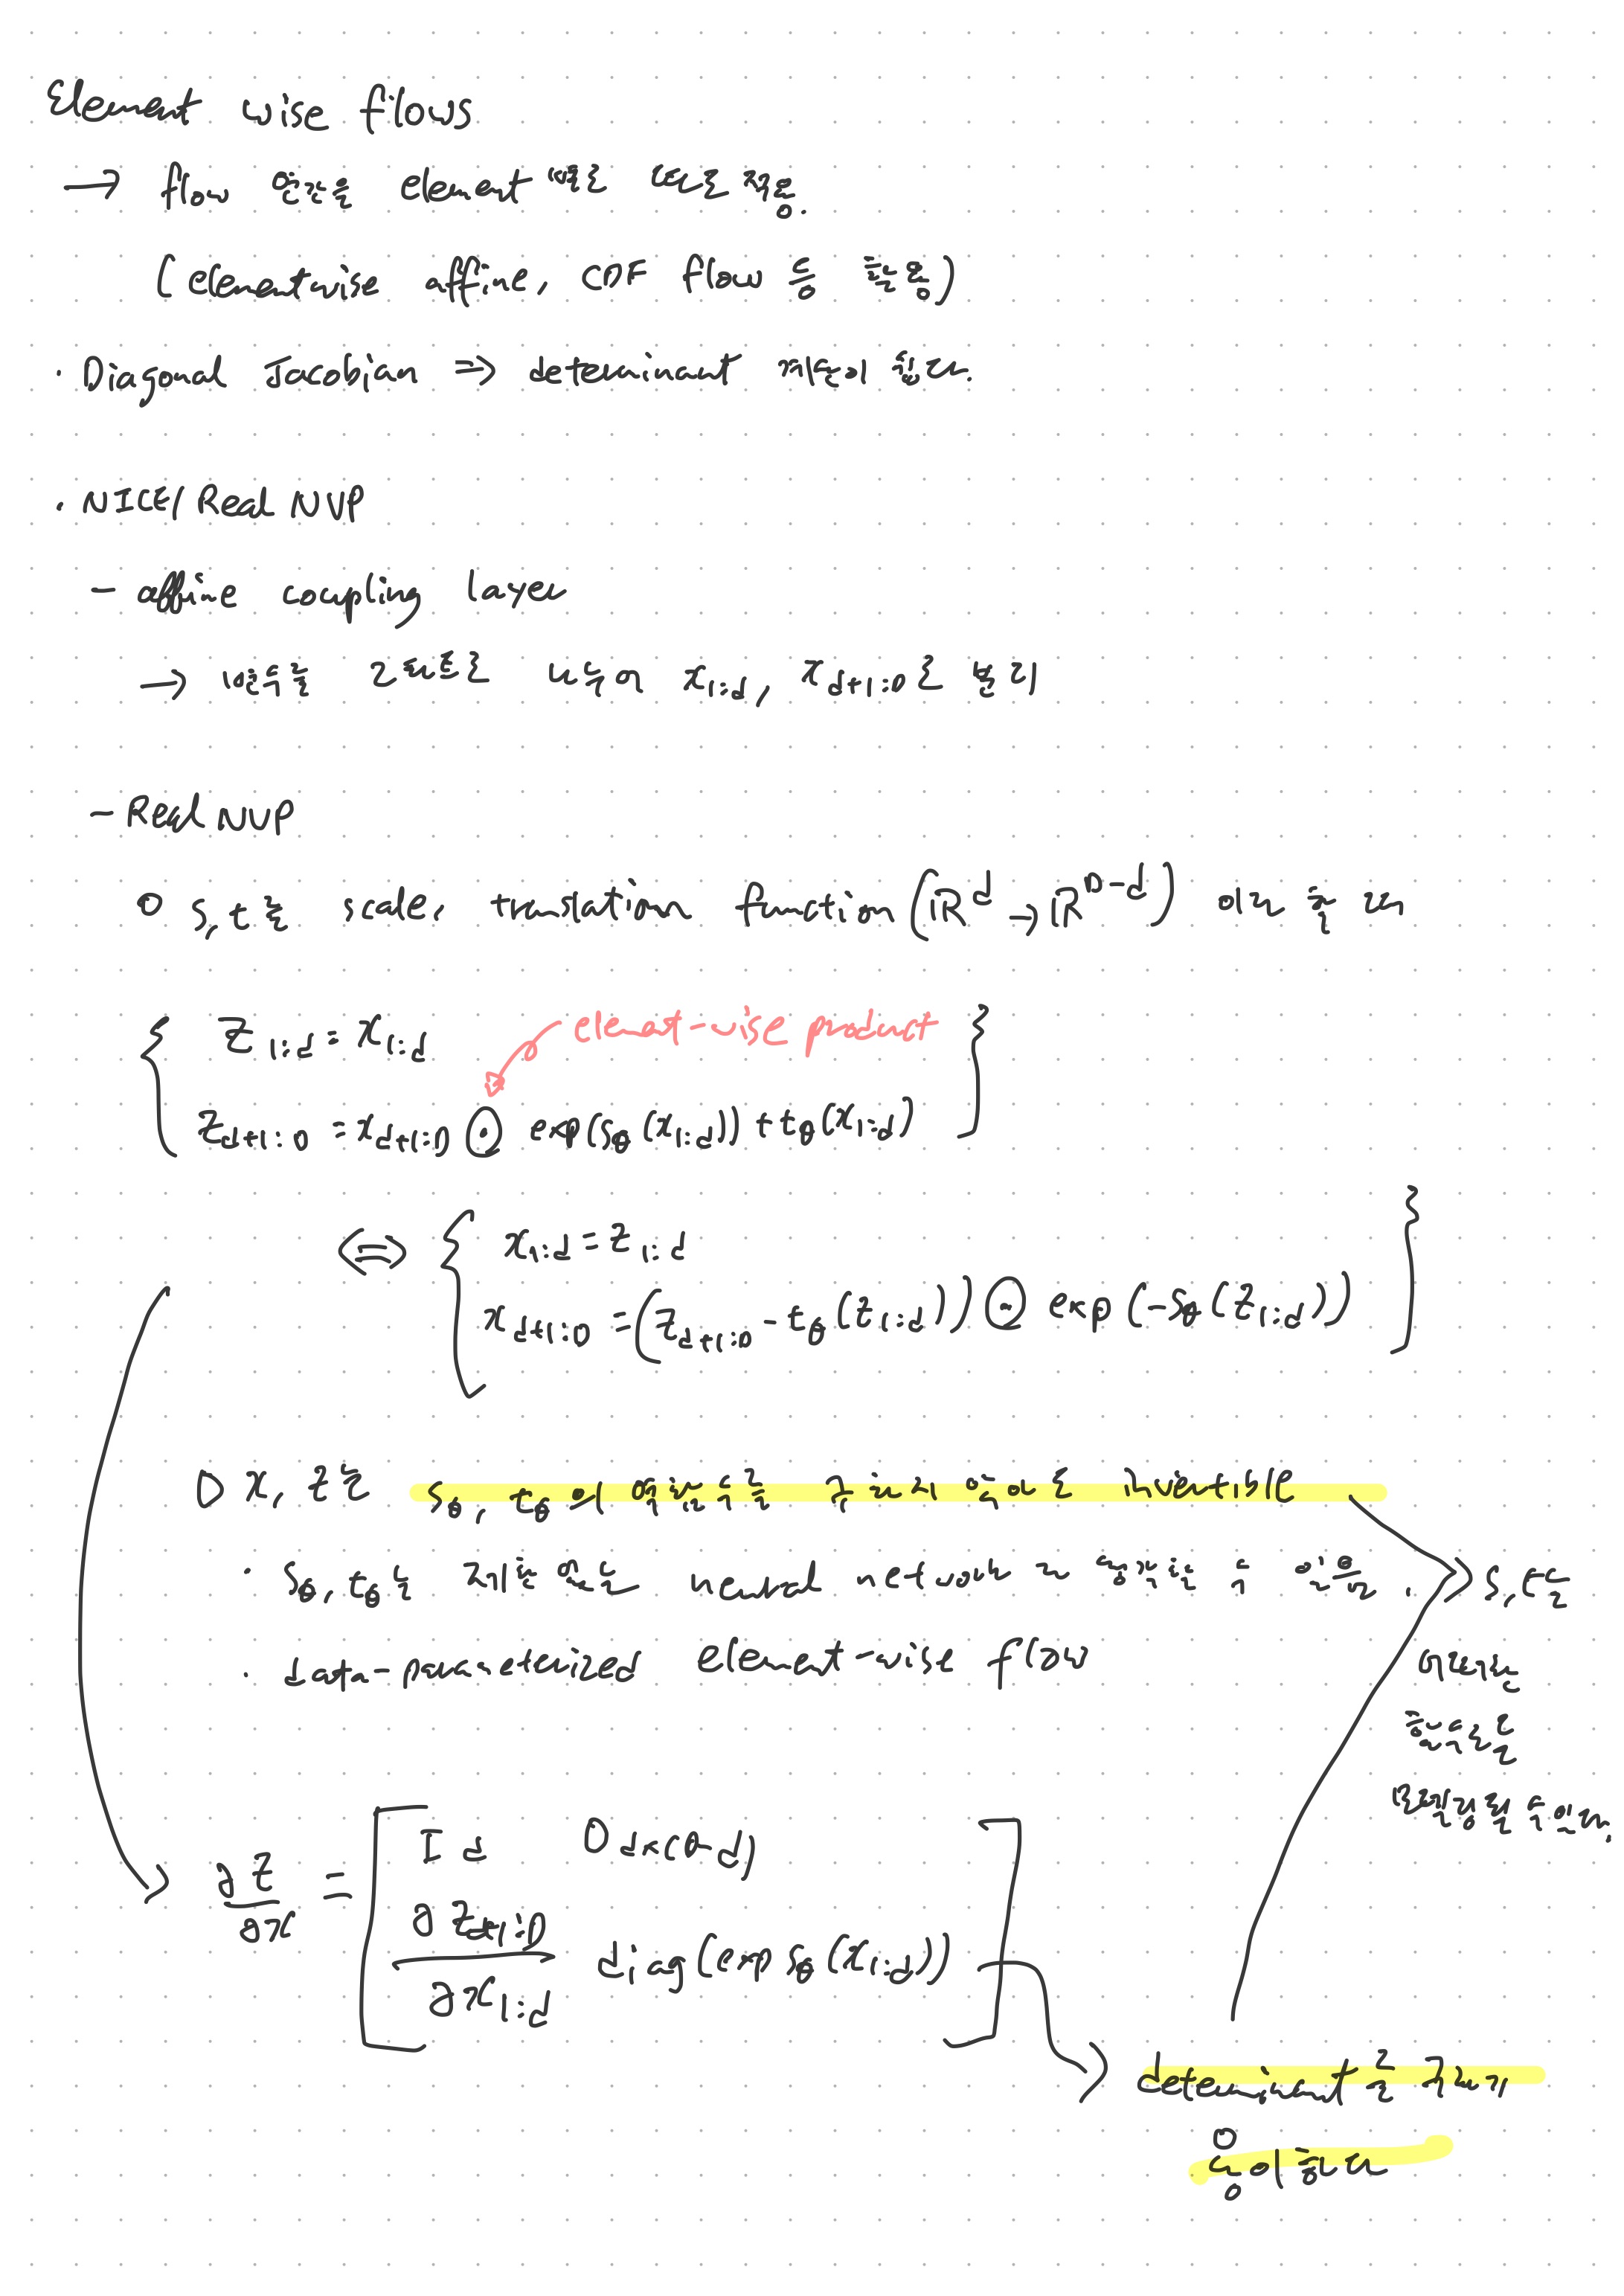 Element wise flows
→ flow 연산을 element 별로 따로 적용.
(elementwise affine, CDF flow 등 활용)
· Diagonal Jacobian ⇒ determinant 계산이 쉽다.
· NICE/Real NVP
- affine coupling layer
→ 변수를 2파트로 나누어 x_{1:d}, x_{d+1:D}로 분리
- Real NVP
O s, t를 scale, translation function (ℝ^d → ℝ^{D-d}) 이라 할 때
element-wise product
{ z_{1:d} = x_{1:d}
z_{d+1:D} = x_{d+1:D} ⊙ exp(s_θ(x_{1:d})) + t_θ(x_{1:d}) }
⇔ { x_{1:d} = z_{1:d}
x_{d+1:D} = (z_{d+1:D} - t_θ(z_{1:d})) ⊙ exp(-s_θ(z_{1:d})) }
O x, z는 s_θ, t_θ의 역함수를 구하지 않아도 invertible
· s_θ, t_θ는 제한없는 neural network로 생각할 수 있음.
s, t는
· data-parameterized element-wise flow
어려운
함수로
모델링할 수 있다.
∂z/∂x = [ I_d 0_{d×(D-d)}
∂z_{d+1:D}/∂x_{1:d} diag(exp s_θ(x_{1:d})) ]
determinant를 구하기
용이하다